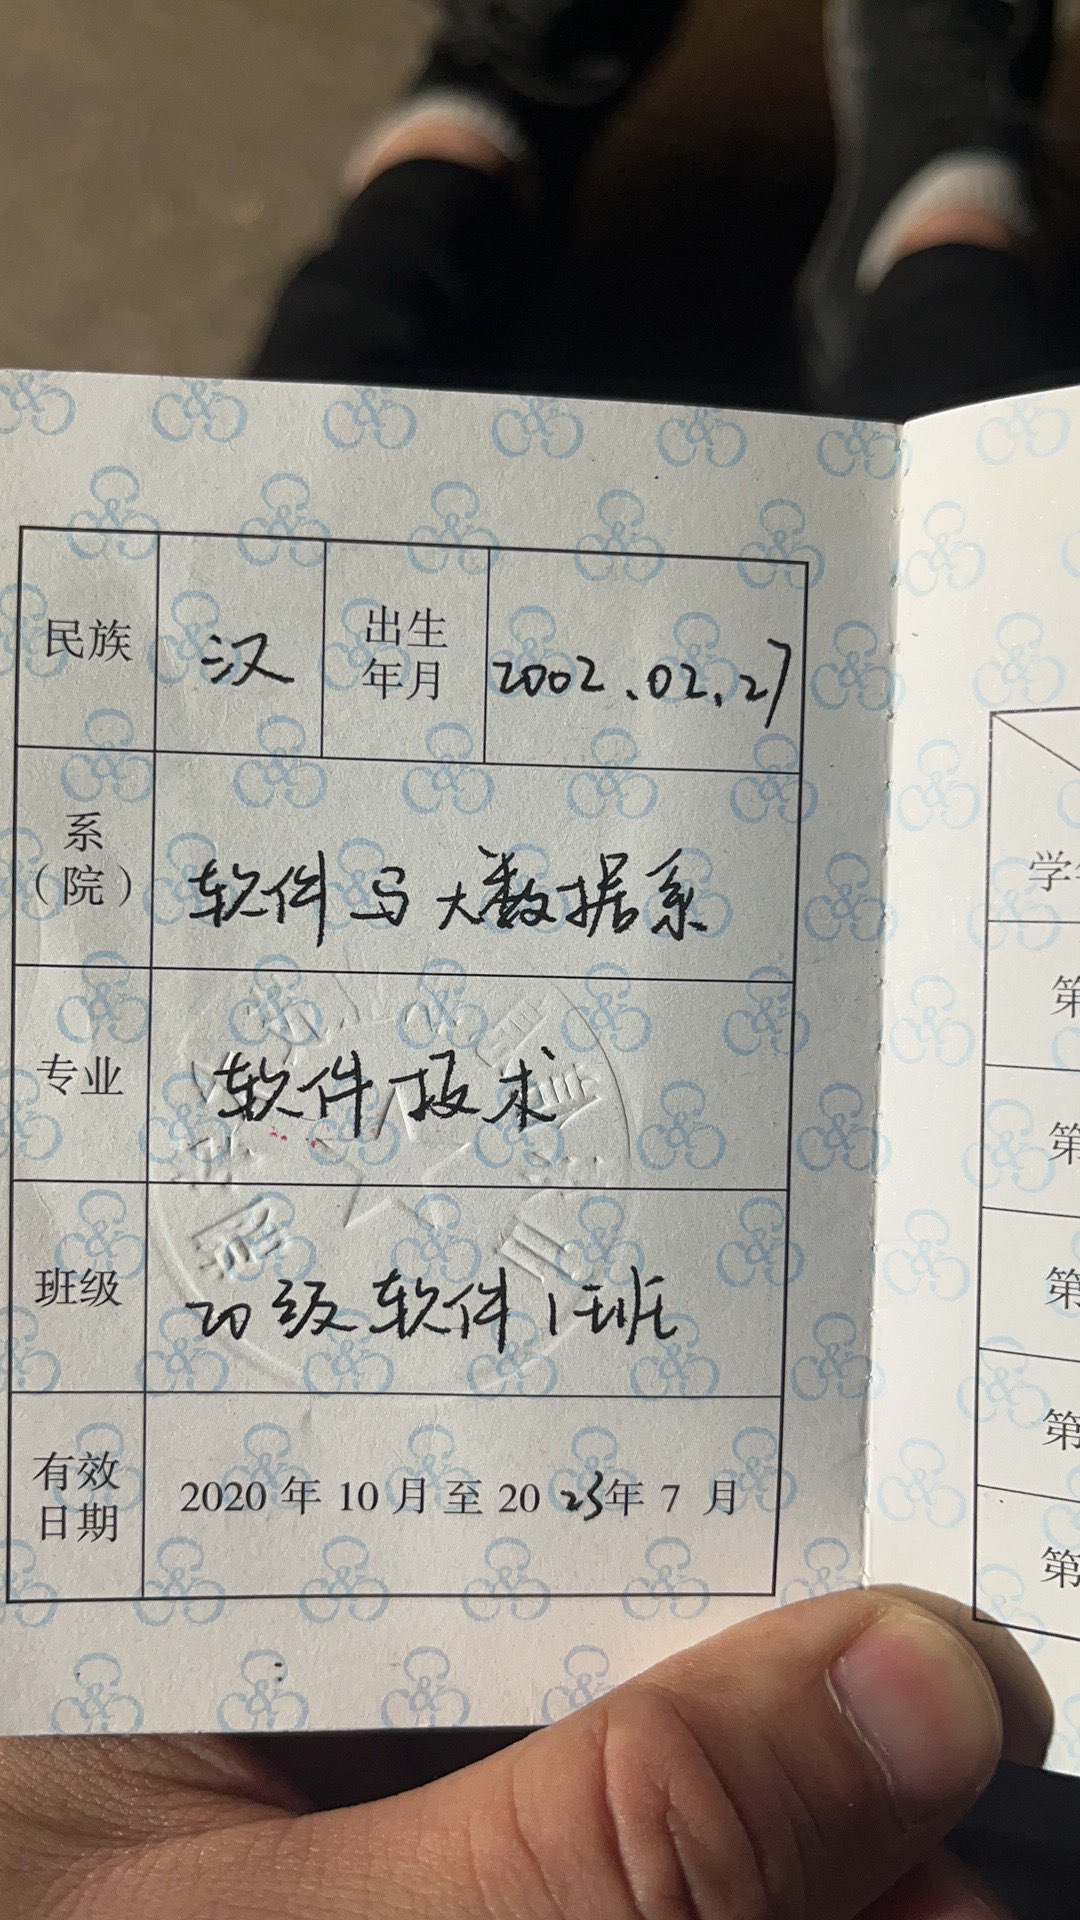 民族 汉 出生年月 2002.02.27
系（院） 软件与大数据系
专业 软件技术
班级 20级软件1班
有效日期 2020年10月至2023年7月
学
第
第
第
第
第